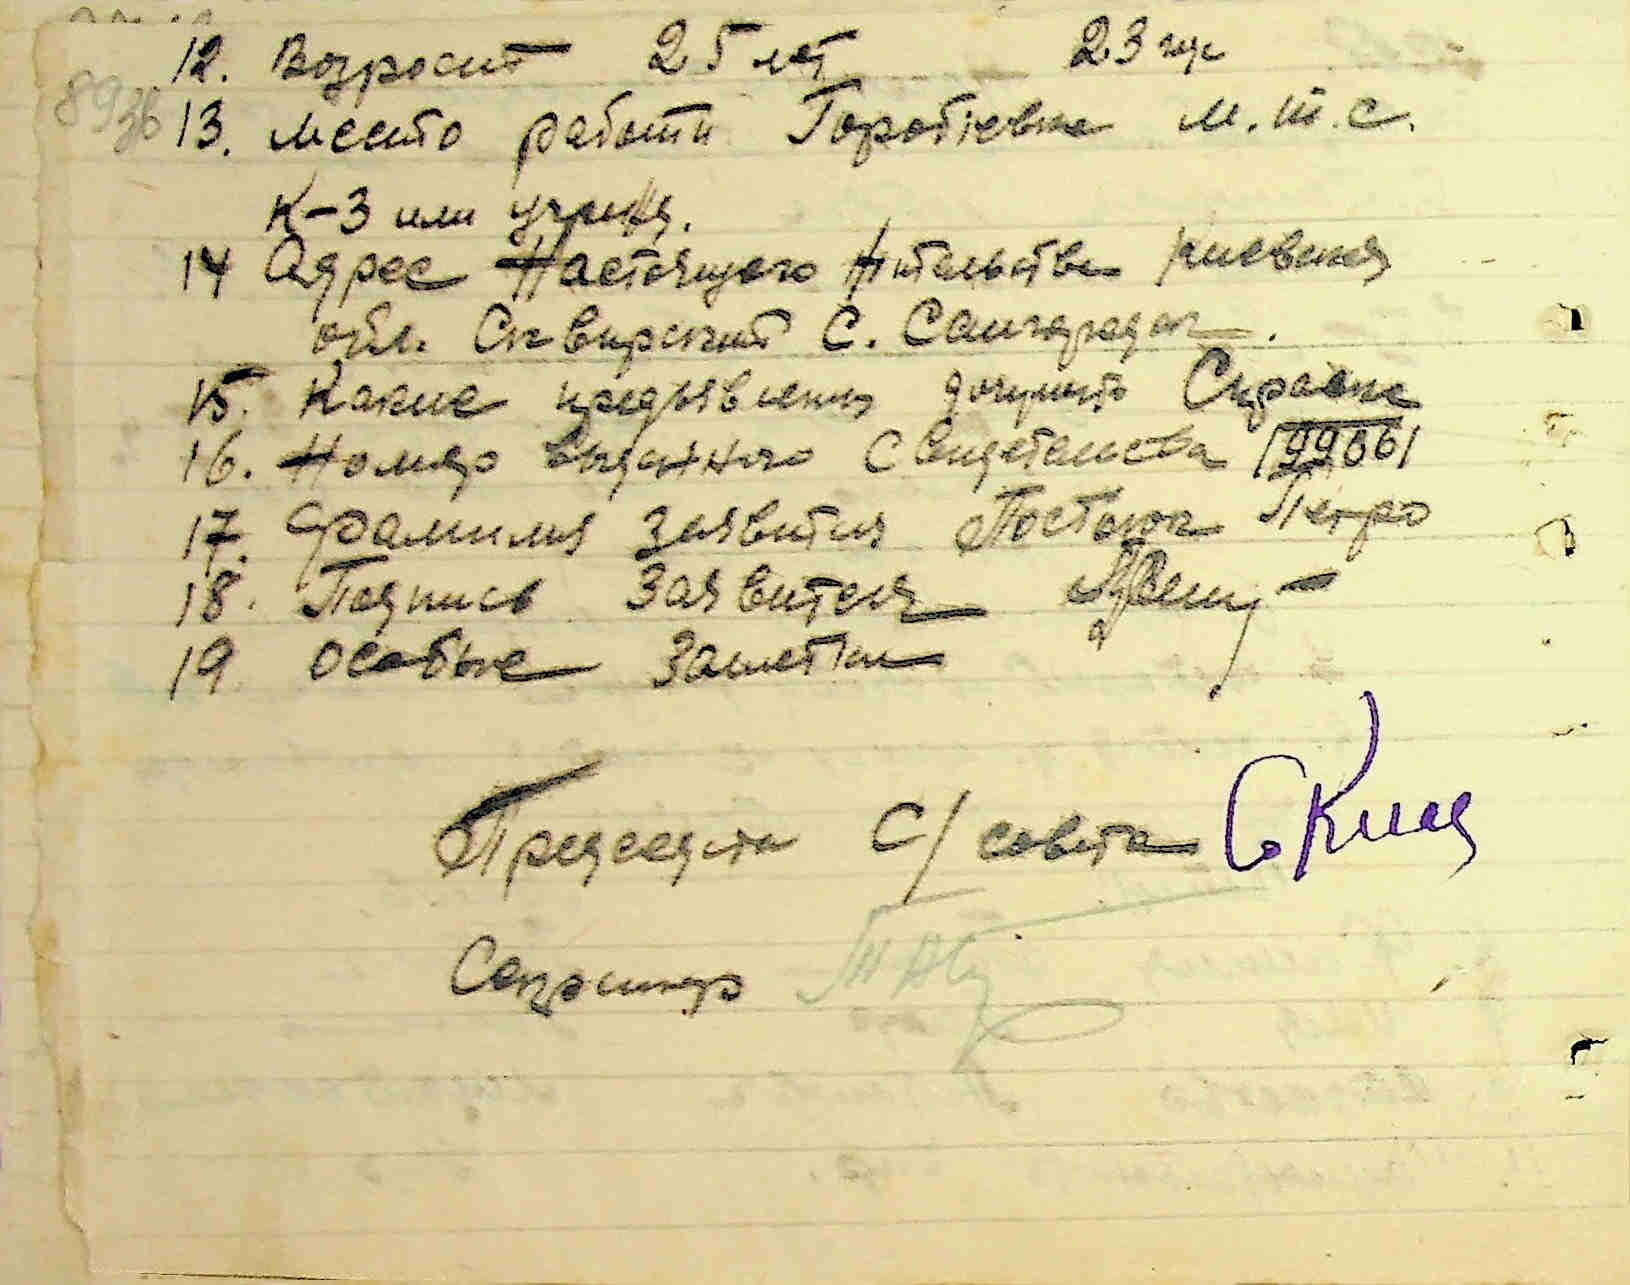 8936
12. Возраст 25 лет 23 год
13. Место работи Горобіевка м.т.с.
К-3 или учрежд.
14 Адрес Настоящого жительства Киевская
обл. Сквирский С. Самгородок.
15. Какие предъявлены документ Справка
16. Номер выданного Свидетельства 99661
17. Фамилия заявителя Постоюк Петро
18. Подпись Заявителя
19 особые Заметки
Председатель С/совета
Секретарь